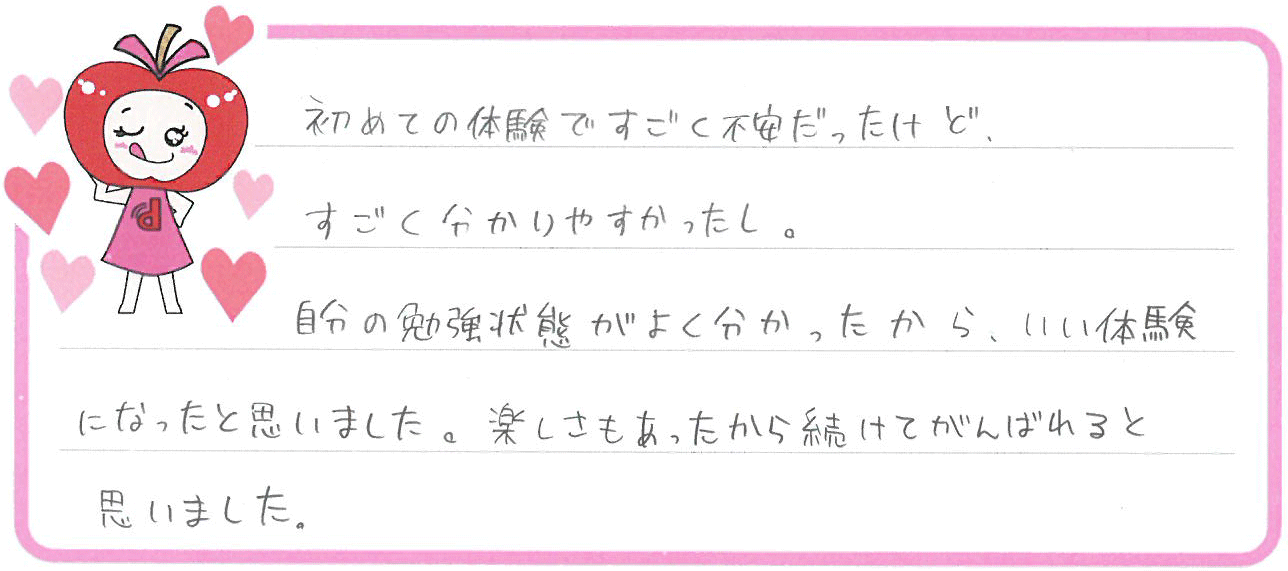 初めての体験ですごく不安だったけど、
すごく分かりやすかったし。
自分の勉強状態がよく分かったから、いい体験
になったと思いました。楽しさもあったから続けてがんばれると
思いました。
d